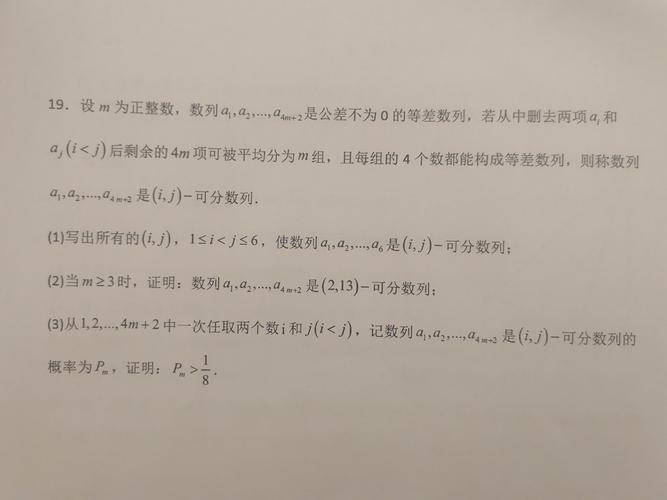 19. 设 m 为正整数，数列 a₁,a₂,...,a₄ₘ₊₂ 是公差不为 0 的等差数列，若从中删去两项 aᵢ 和
aⱼ(i<j) 后剩余的 4m 项可被平均分为 m 组，且每组的 4 个数都能构成等差数列，则称数列
a₁,a₂,...,a₄ₘ₊₂ 是(i,j)－可分数列.
(1)写出所有的(i,j)，1≤i<j≤6，使数列 a₁,a₂,...,a₆ 是(i,j)－可分数列；
(2)当 m≥3 时，证明：数列 a₁,a₂,...,a₄ₘ₊₂ 是(2,13)－可分数列；
(3)从1,2,...,4m+2 中一次任取两个数 i 和 j(i<j)，记数列 a₁,a₂,...,a₄ₘ₊₂ 是(i,j)－可分数列的
概率为 Pₘ，证明：Pₘ>1/8.